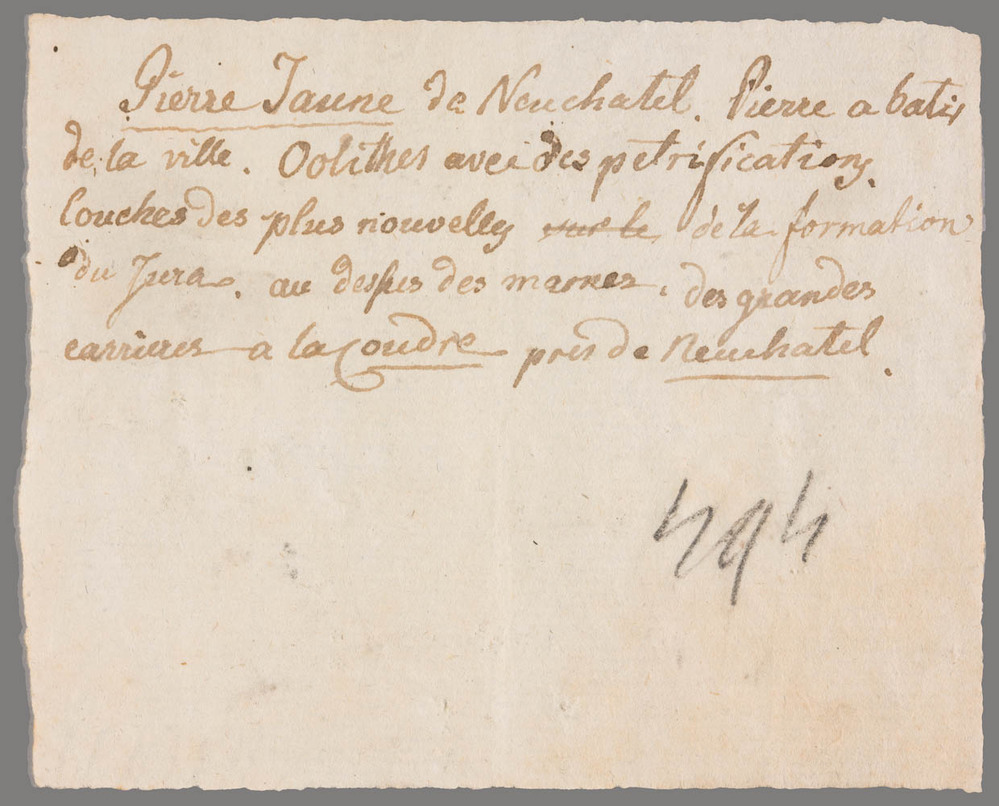 Pierre Jaune de Neuchatel. Pierre a batir
de la ville. Oolithes avec des petrifications.
Couches des plus nouvelles sur le de la formation
du Jura. au dessus des marnes. des grandes
carrieres a la Coudre près de Neuchatel.
494